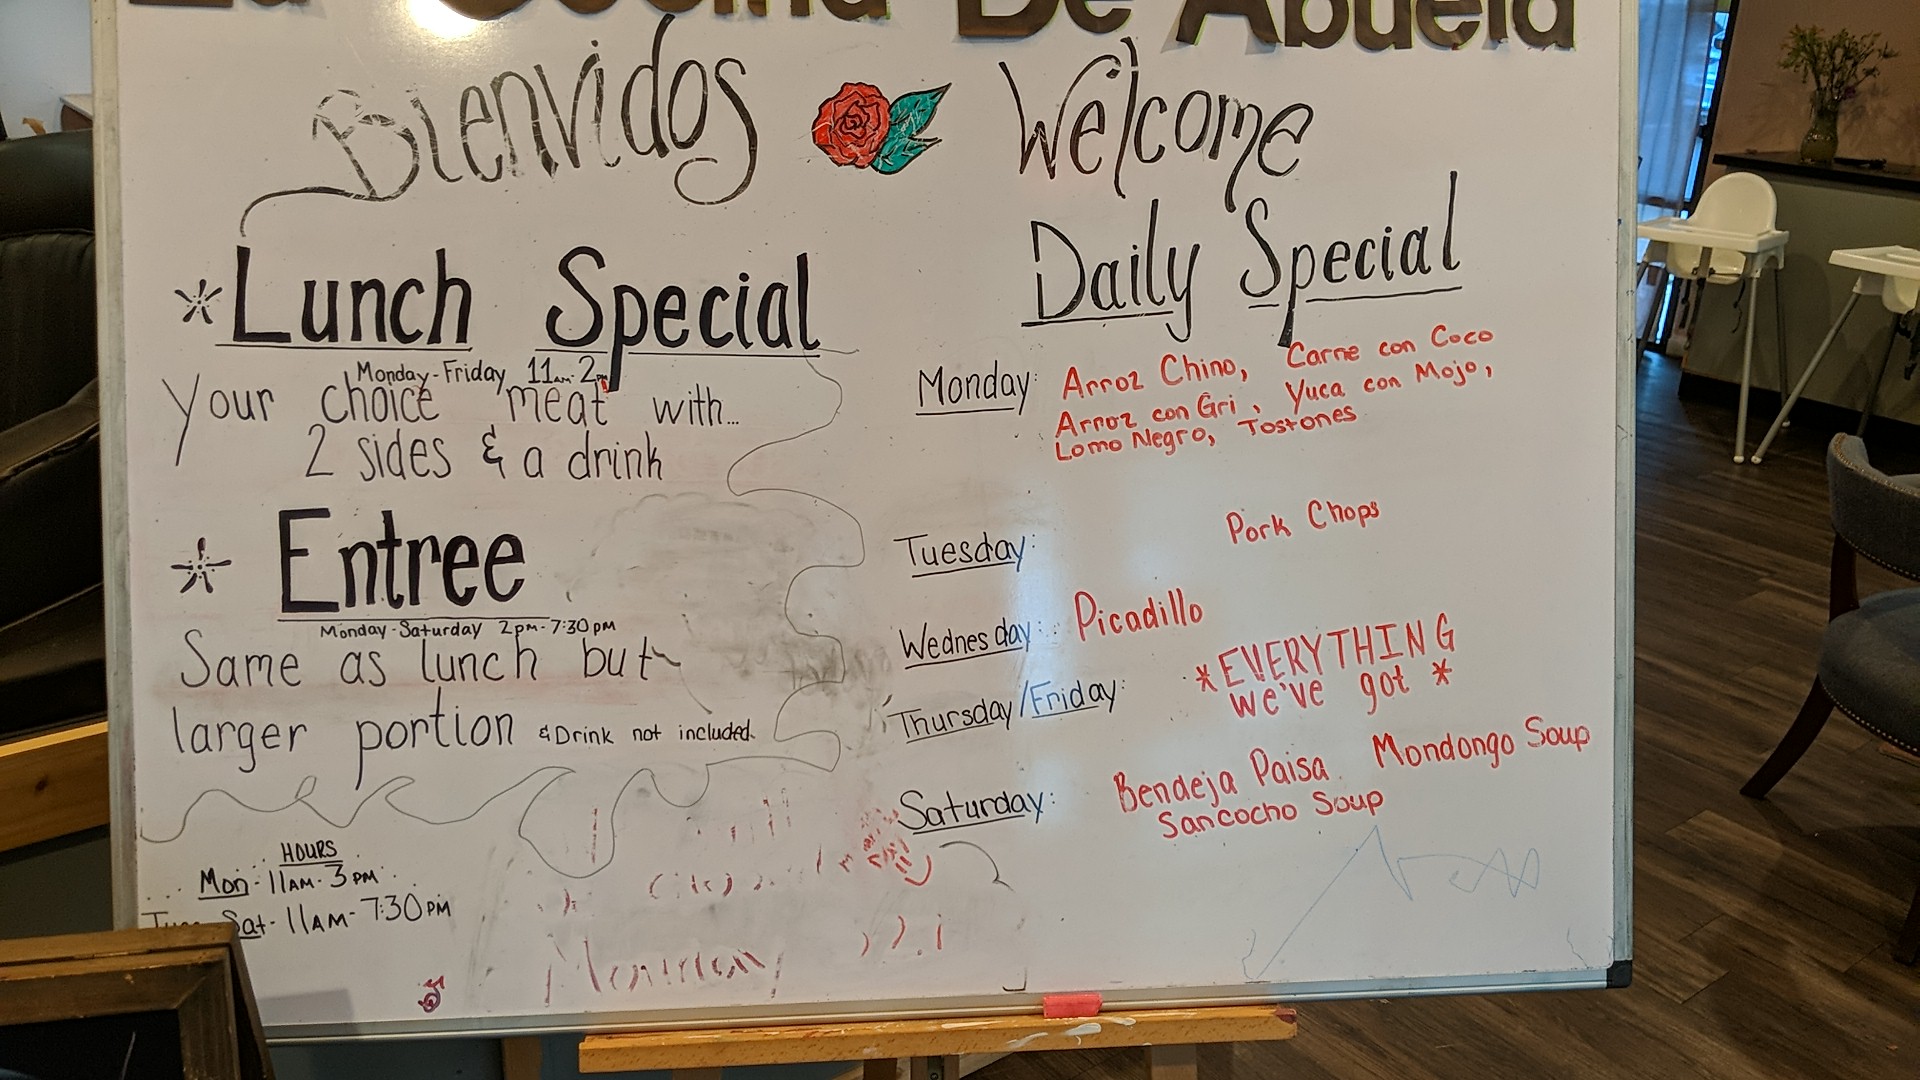 La Cocina De Abuela
Bienvidos Welcome
*Lunch Special
Monday-Friday 11am-2pm
Your choice meat with...
2 sides & a drink
* Entree
Monday-Saturday 2pm-7:30pm
Same as lunch but
larger portion & Drink not included.
HOURS
Mon-11AM-3PM
Tues-Sat-11AM-7:30PM
Daily Special
Monday: Arroz Chino, Carne con Coco
Arroz con Gri, Yuca con Mojo,
Lomo Negro, Tostones
Tuesday: Pork Chops
Wednesday: Picadillo
Thursday/Friday: *EVERYTHING
we've got *
Saturday: Bendeja Paisa Mondongo Soup
Sancocho Soup